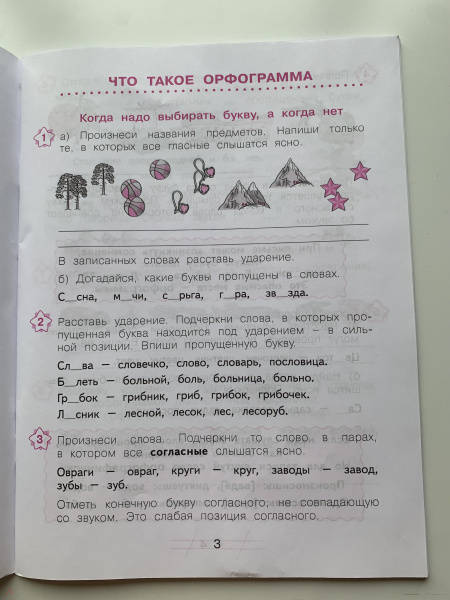 ЧТО ТАКОЕ ОРФОГРАММА
Когда надо выбирать букву, а когда нет
1 а) Произнеси названия предметов. Напиши только
те, в которых все гласные слышатся ясно.
В записанных словах расставь ударение.
б) Догадайся, какие буквы пропущены в словах.
С__сна, м__чи, с__рьга, г__ра, зв__зда.
2 Расставь ударение. Подчеркни слова, в которых про-
пущенная буква находится под ударением – в силь-
ной позиции. Впиши пропущенную букву.
Сл__ва – словечко, слово, словарь, пословица.
Б__леть – больной, боль, больница, больно.
Гр__бок – грибник, гриб, грибок, грибочек.
Л__сник – лесной, лесок, лес, лесоруб.
3 Произнеси слова. Подчеркни то слово, в парах,
в котором все согласные слышатся ясно.
Овраги – овраг, круги – круг, заводы – завод,
зубы – зуб.
Отметь конечную букву согласного, не совпадающую
со звуком. Это слабая позиция согласного.
3